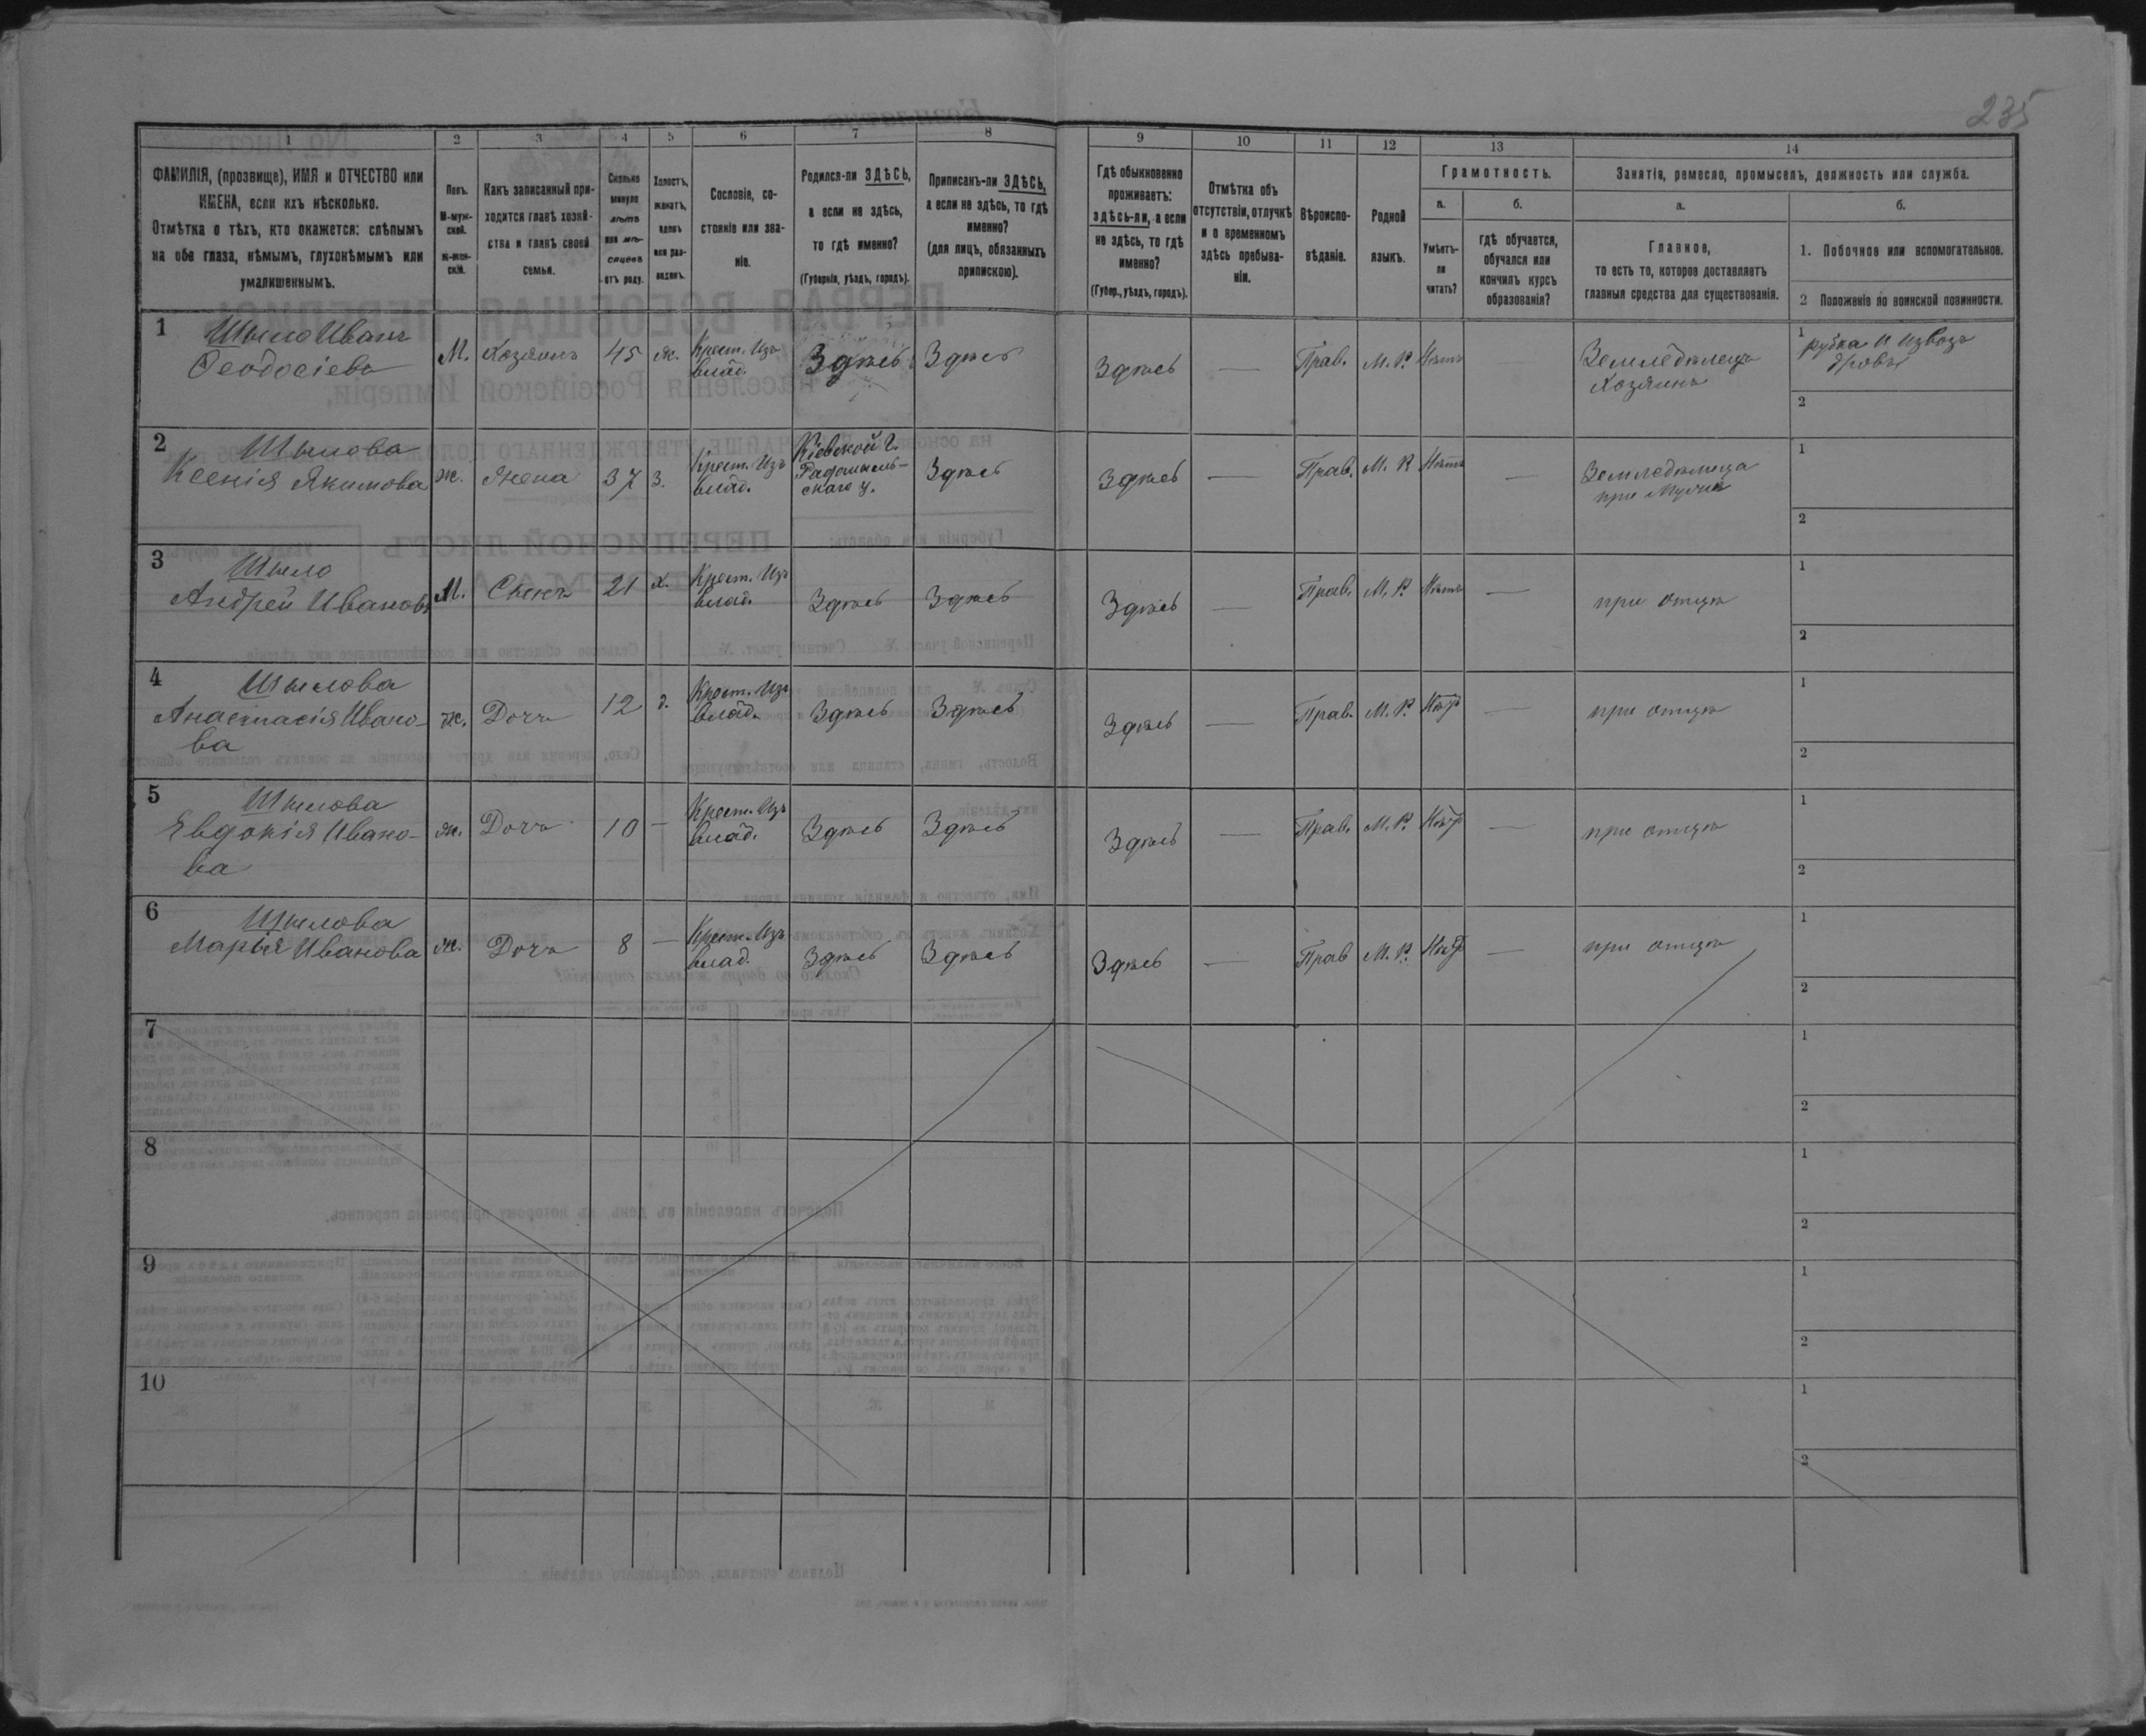 235
1 2 3 4 5 6 7 8 9 10 11 12 13 14
ФАМИЛІЯ, (прозвище), ИМЯ и ОТЧЕСТВО или ИМЕНА, если ихъ нѣсколько.
Отмѣтка о тѣхъ, кто окажется: слѣпымъ на оба глаза, нѣмымъ, глухонѣмымъ или умалишеннымъ.
Полъ.
М-муж-
ской.
ж-жен-
скій.
Какъ записанный при-
ходится главѣ хозяй-
ства и главѣ своей
семьи.
Сколько
минуло
лѣтъ
или мѣ-
сяцевъ
отъ роду.
Холостъ,
женатъ,
вдовъ
или раз-
веденъ.
Сословіе, со-
стояніе или зва-
ніе.
Родился-ли ЗДѢСЬ,
а если не здѣсь,
то гдѣ именно?
(Губернія, уѣздъ, городъ).
Приписанъ-ли ЗДѢСЬ,
а если не здѣсь, то гдѣ
именно?
(для лицъ, обязанныхъ
припискою).
Гдѣ обыкновенно
проживаетъ:
здѣсь-ли, а если
не здѣсь, то гдѣ
именно?
(Губер., уѣздъ, городъ).
Отмѣтка объ
отсутствіи, отлучкѣ
и о временномъ
здѣсь пребыва-
ніи.
Вѣроиспо-
вѣданіе.
Родной
языкъ.
Грамотность.
а.
Умѣетъ-
ли
читать?
б.
гдѣ обучается,
обучался или
кончилъ курсъ
образованія?
Занятія, ремесло, промыселъ, должность или служба.
а.
Главное,
то есть то, которое доставляетъ
главныя средства для существованія.
б.
1. Побочное или вспомогательное.
2 Положеніе по воинской повинности.
1 Шыло Иванъ
Ѳеодосіевъ
М. Хозяинъ 45 ж. Крест. Изъ
влад.
Здѣсь Здѣсь Здѣсь — Прав. М. Р. Нѣтъ
Земледѣлецъ
Хозяинъ
1 рубка и извозъ
дровъ
2
2 Шылова
Ксенія Якимова
ж. Жена 37 з. Крест. Изъ
влад.
Кіевской г.
Радомысль-
скаго у.
Здѣсь Здѣсь — Прав. М. Р. Нѣтъ —
Земледѣлица
при мужѣ
1
2
3 Шыло
Андрей Ивановъ
М. Сынъ 21 х. Крест. Изъ
влад.
Здѣсь Здѣсь Здѣсь — Прав. М. Р. Нѣтъ — при отцѣ
1
2
4 Шылова
Анастасія Ивано-
ва
ж. Дочь 12 д. Крест. Изъ
влад.
Здѣсь Здѣсь Здѣсь — Прав. М. Р. — при отцѣ
1
2
5 Шылова
Евдокія Ивано-
ва
ж. Дочь 10 — Крест. Изъ
влад.
Здѣсь Здѣсь Здѣсь — Прав. М. Р. — при отцѣ
1
2
6 Шылова
Марья Иванова
ж. Дочь 8 — Крест. Изъ
влад.
Здѣсь Здѣсь Здѣсь — Прав М. Р. — при отцѣ
1
2
7
1
2
8
1
2
9
1
2
10
1
2